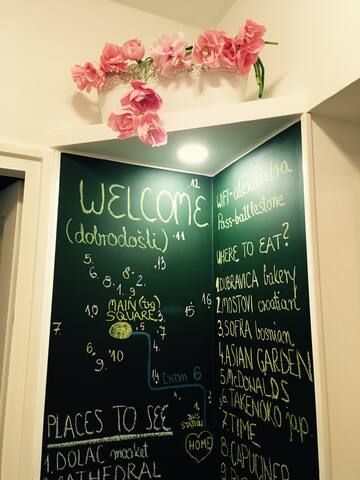 WELCOME
(dobrodošli)
12
11
13
5.
6.
8.
2.
8.
1.
9
3.
10
MAIN (trg)
SQUARE
16
15
7
5
7.
4
6
10
9.
14
tram 6
1
2
BUS
STATION
HOME
PLACES TO SEE
1. DOLAC market
CATHEDRAL
WIFI-alexandra
Pass-battlestone
WHERE TO EAT?
1 DUBRAVICA bakery
2 MOSTOVI croatian
3 SOFRA bosnian
4 ASIAN GARDEN
5 McDONALDS
6 TAKENOKO jap
7 TIME
8 CAPUCINER
9